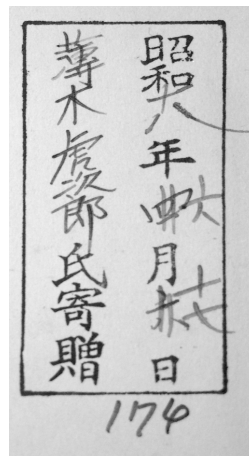 昭和八年六月十七日
薄木虎次郎氏寄贈
174